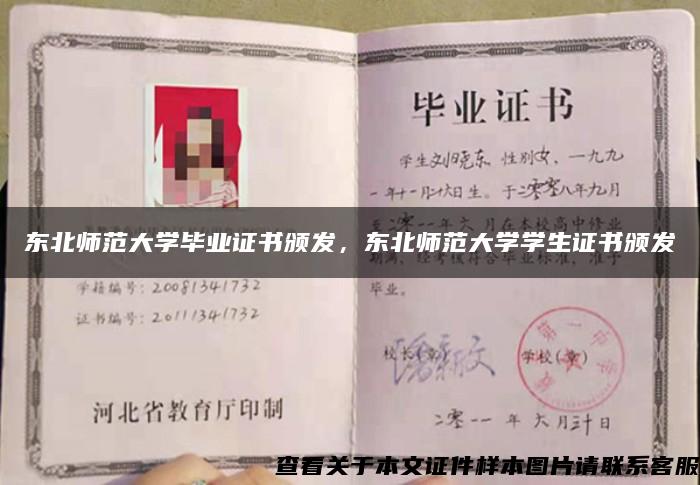 毕业证书
学生刘晓东 性别女、一九九
一年十一月十六日生。于二零零八年九月
至二零一一年六月在本校高中修业
东北师范大学毕业证书颁发，东北师范大学学生证书颁发
期满，经考核符合毕业标准，准予
毕业。
学籍编号：20081341732
证书编号：20111341732
校长(章)
学校(章)
第一中学
河北省教育厅印制
二零一一年六月三十日
查看关于本文证件样本图片请联系客服